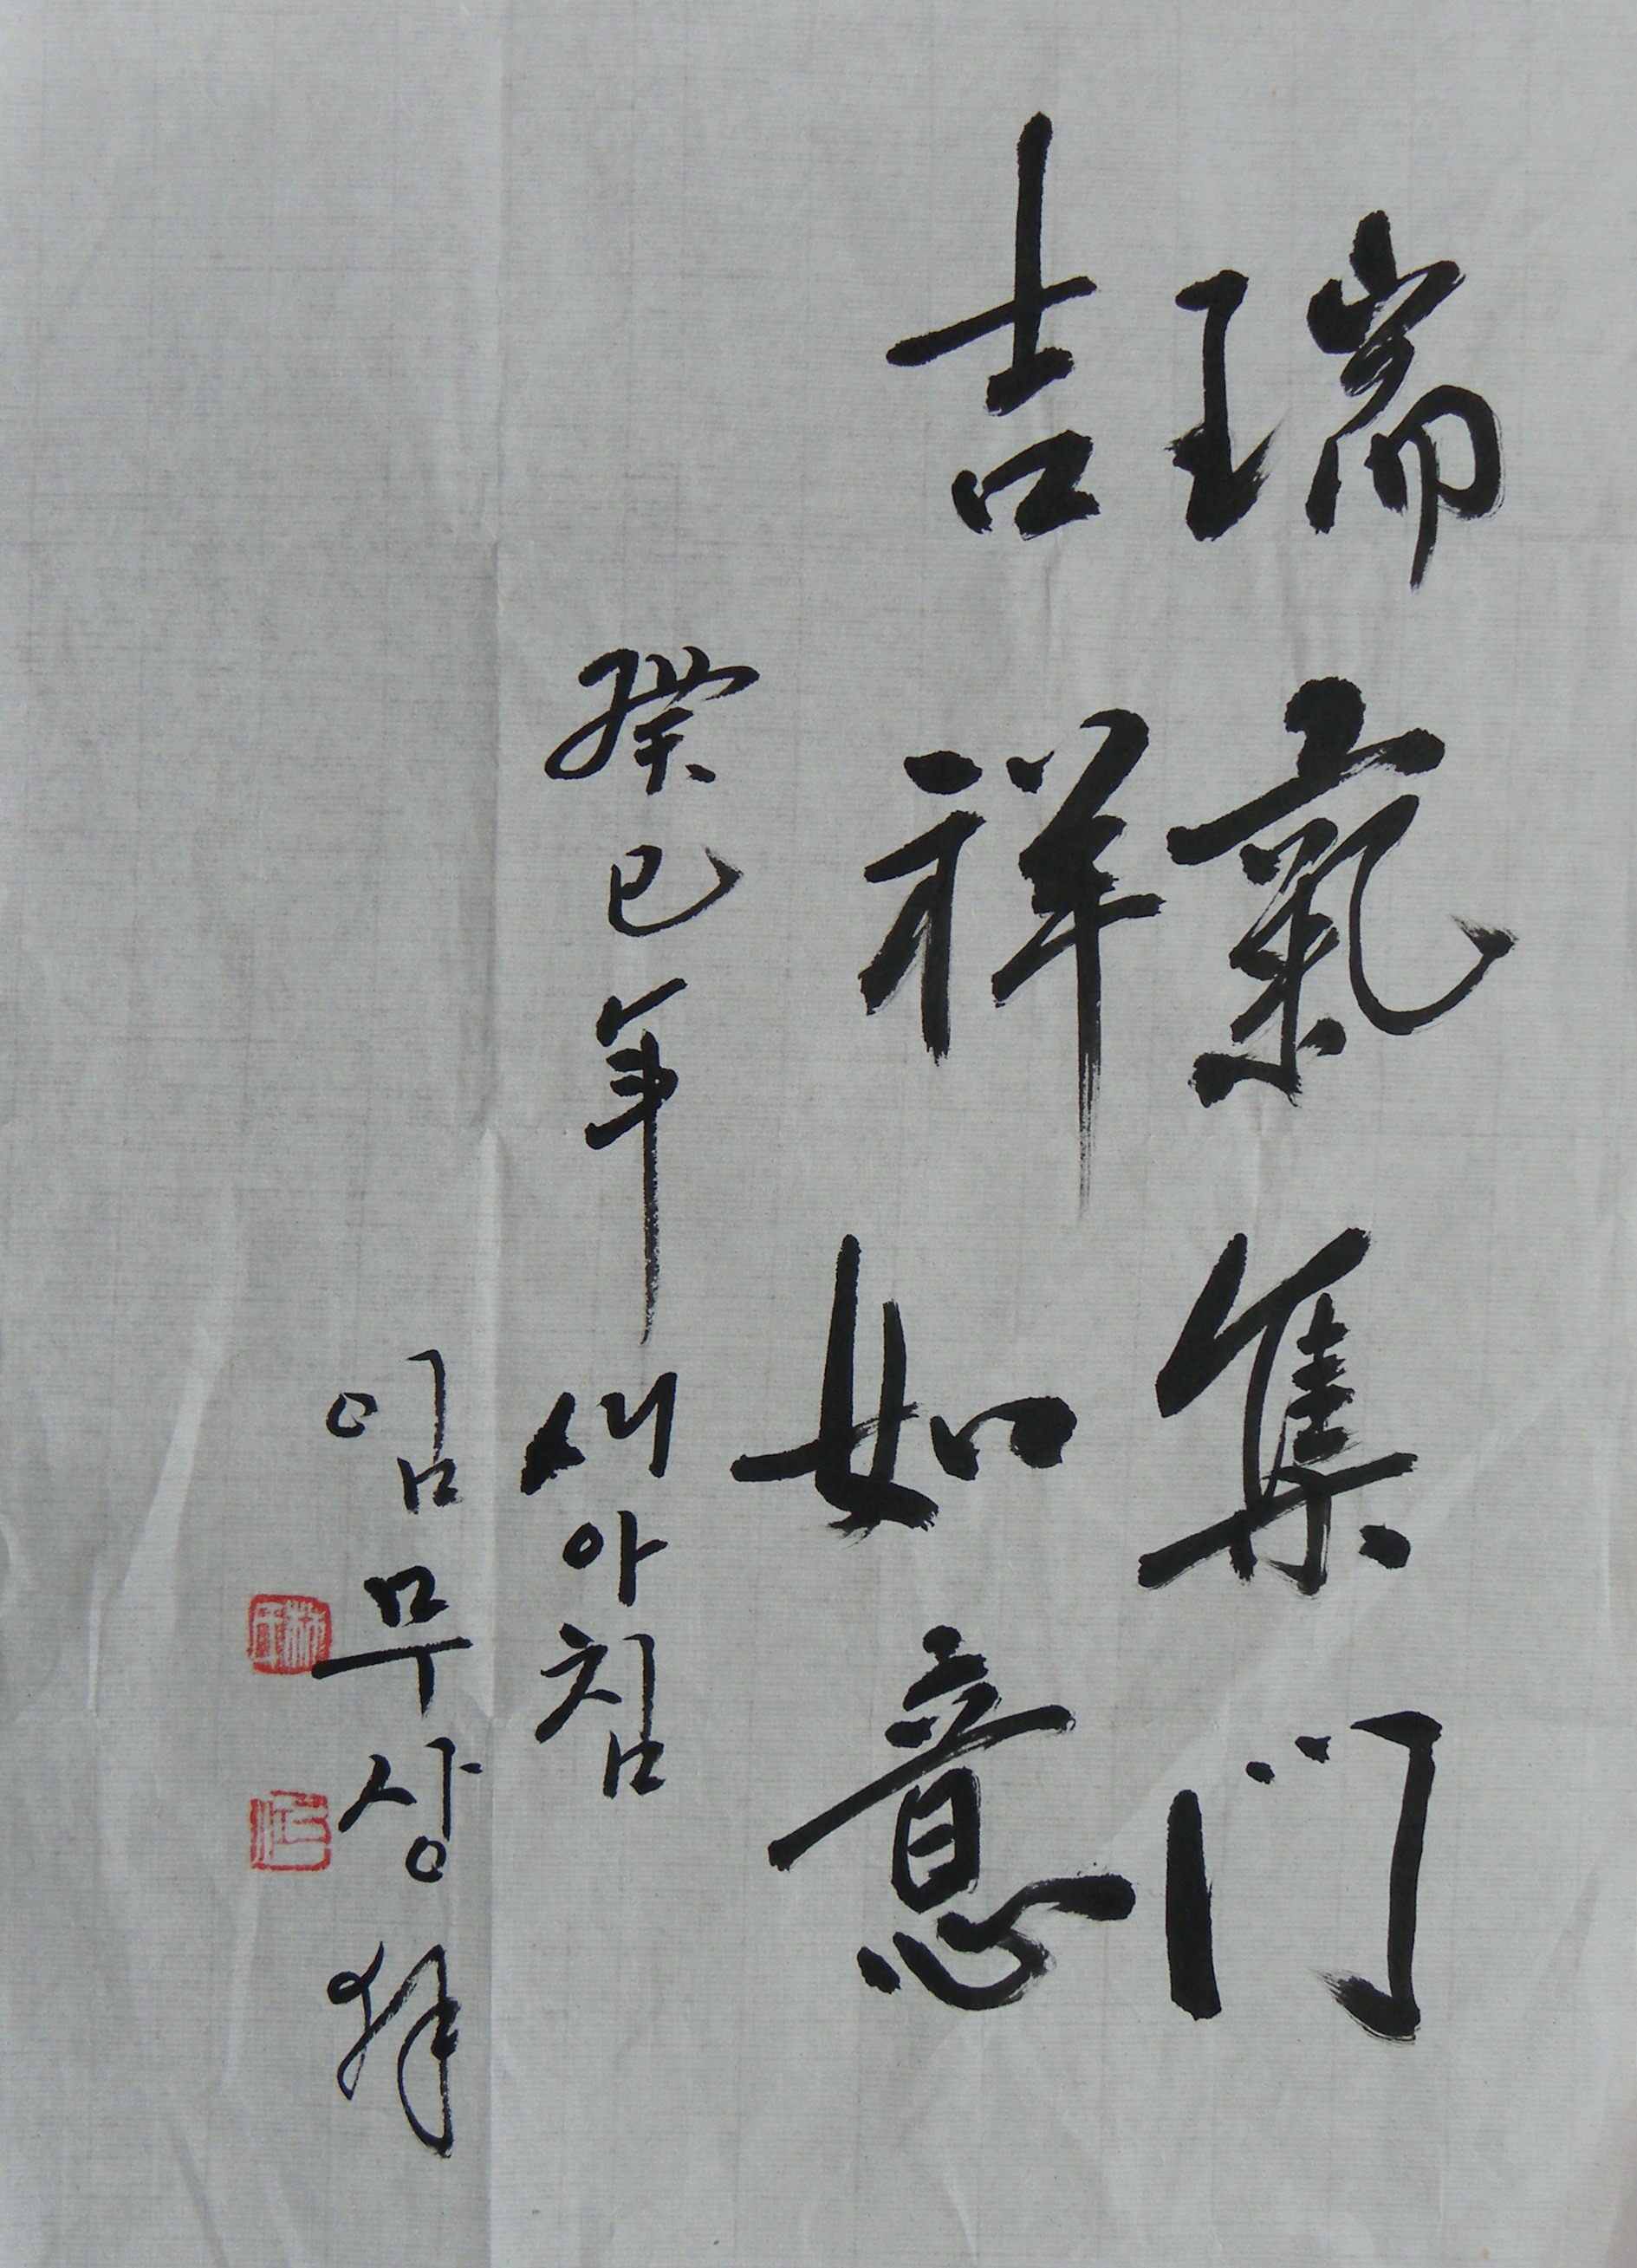 瑞氣集门
吉祥如意
癸巳年 새아침
임무상